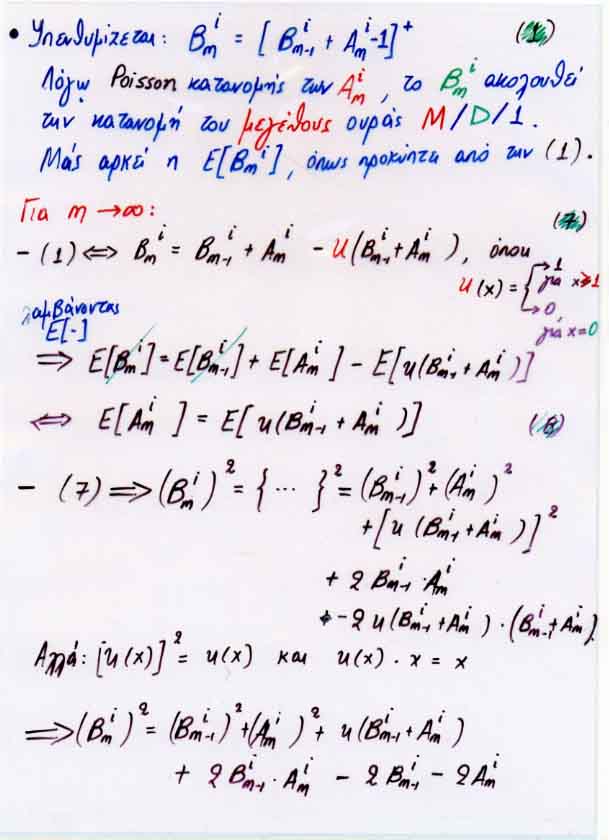 • Υπενθυμίζεται: Bₘⁱ = [Bₘ₋₁ⁱ + Aₘⁱ-1]⁺ (1)
Λόγω Poisson κατανομής των Aₘⁱ, το Bₘⁱ ακολουθεί
την κατανομή του μεγέθους ουράς M/D/1.
Μάς αρκεί η E[Bₘⁱ], όπως προκύπτει από την (1).
Για m → ∞: (7)
- (1) ⇔ Bₘⁱ = Bₘ₋₁ⁱ + Aₘⁱ - U(Bₘ₋₁ⁱ+Aₘⁱ), όπου
U(x) = { → 1 για x≥1
→ 0, για x=0
λαμβάνοντας
E[-]
⇒ E[Bₘⁱ] = E[Bₘ₋₁ⁱ] + E[Aₘⁱ] - E[u(Bₘ₋₁ⁱ + Aₘⁱ)]
⇔ E[Aₘⁱ] = E[u(Bₘ₋₁ⁱ + Aₘⁱ)] (8)
- (7) ⇒ (Bₘⁱ)² = {...}² = (Bₘ₋₁ⁱ)² + (Aₘⁱ)²
+ [u (Bₘ₋₁ⁱ + Aₘⁱ)]²
+ 2 Bₘ₋₁ⁱ · Aₘⁱ
- 2 u(Bₘ₋₁ⁱ + Aₘⁱ) · (Bₘ₋₁ⁱ + Aₘⁱ).
Αλλά: [u(x)]² = u(x) και u(x) · x = x
⇒ (Bₘⁱ)² = (Bₘ₋₁ⁱ)² + (Aₘⁱ)² + u(Bₘ₋₁ⁱ + Aₘⁱ)
+ 2 Bₘ₋₁ⁱ · Aₘⁱ - 2 Bₘ₋₁ⁱ - 2Aₘⁱ